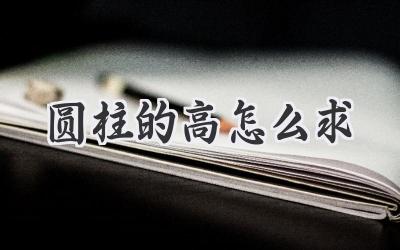 圆柱的高怎么求